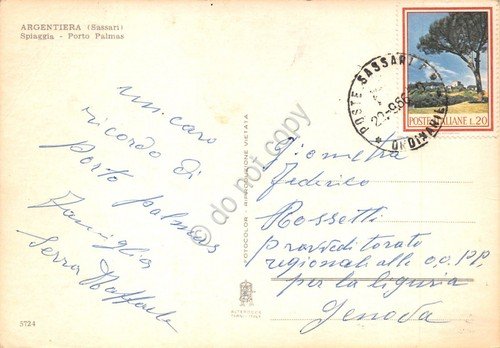 ARGENTIERA (Sassari)
Spiaggia - Porto Palmas
un caro
ricordo di
Porto Palmas
Famiglia
Serra Raffaele
FOTOCOLOR - RIPRODUZIONE VIETATA
ALTEROCCA
TERNI - ITALY
5724
POSTE SASSARI F.
ORDINARIE
POSTE ITALIANE L.20
Geometra
Federico
Rossetti
provveditorato
regionali alle oo. PP.
per la liguria
Genova
© do not copy